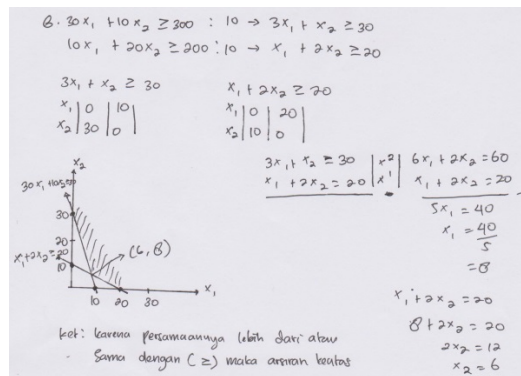 8. 30x₁ + 10x₂ ≥ 300 : 10 → 3x₁ + x₂ ≥ 30
10x₁ + 20x₂ ≥ 200 : 10 → x₁ + 2x₂ ≥ 20
3x₁ + x₂ ≥ 30
x₁ | 0 | 10 |
x₂ | 30 | 0 |
x₁ + 2x₂ ≥ 20
x₁ | 0 | 20 |
x₂ | 10 | 0 |
3x₁ + x₂ = 30 | x2 | 6x₁ + 2x₂ = 60
x₁ + 2x₂ = 20 | x1 | x₁ + 2x₂ = 20 -
5x₁ = 40
x₁ = 40/5
= 8
x₁ + 2x₂ = 20
8 + 2x₂ = 20
2x₂ = 12
x₂ = 6
x₂
30
20
10
x₁+2x₂=20
(6,8)
10 20 30 x₁
ket: karena persamaannya lebih dari atau
sama dengan (≥) maka arsiran keatas